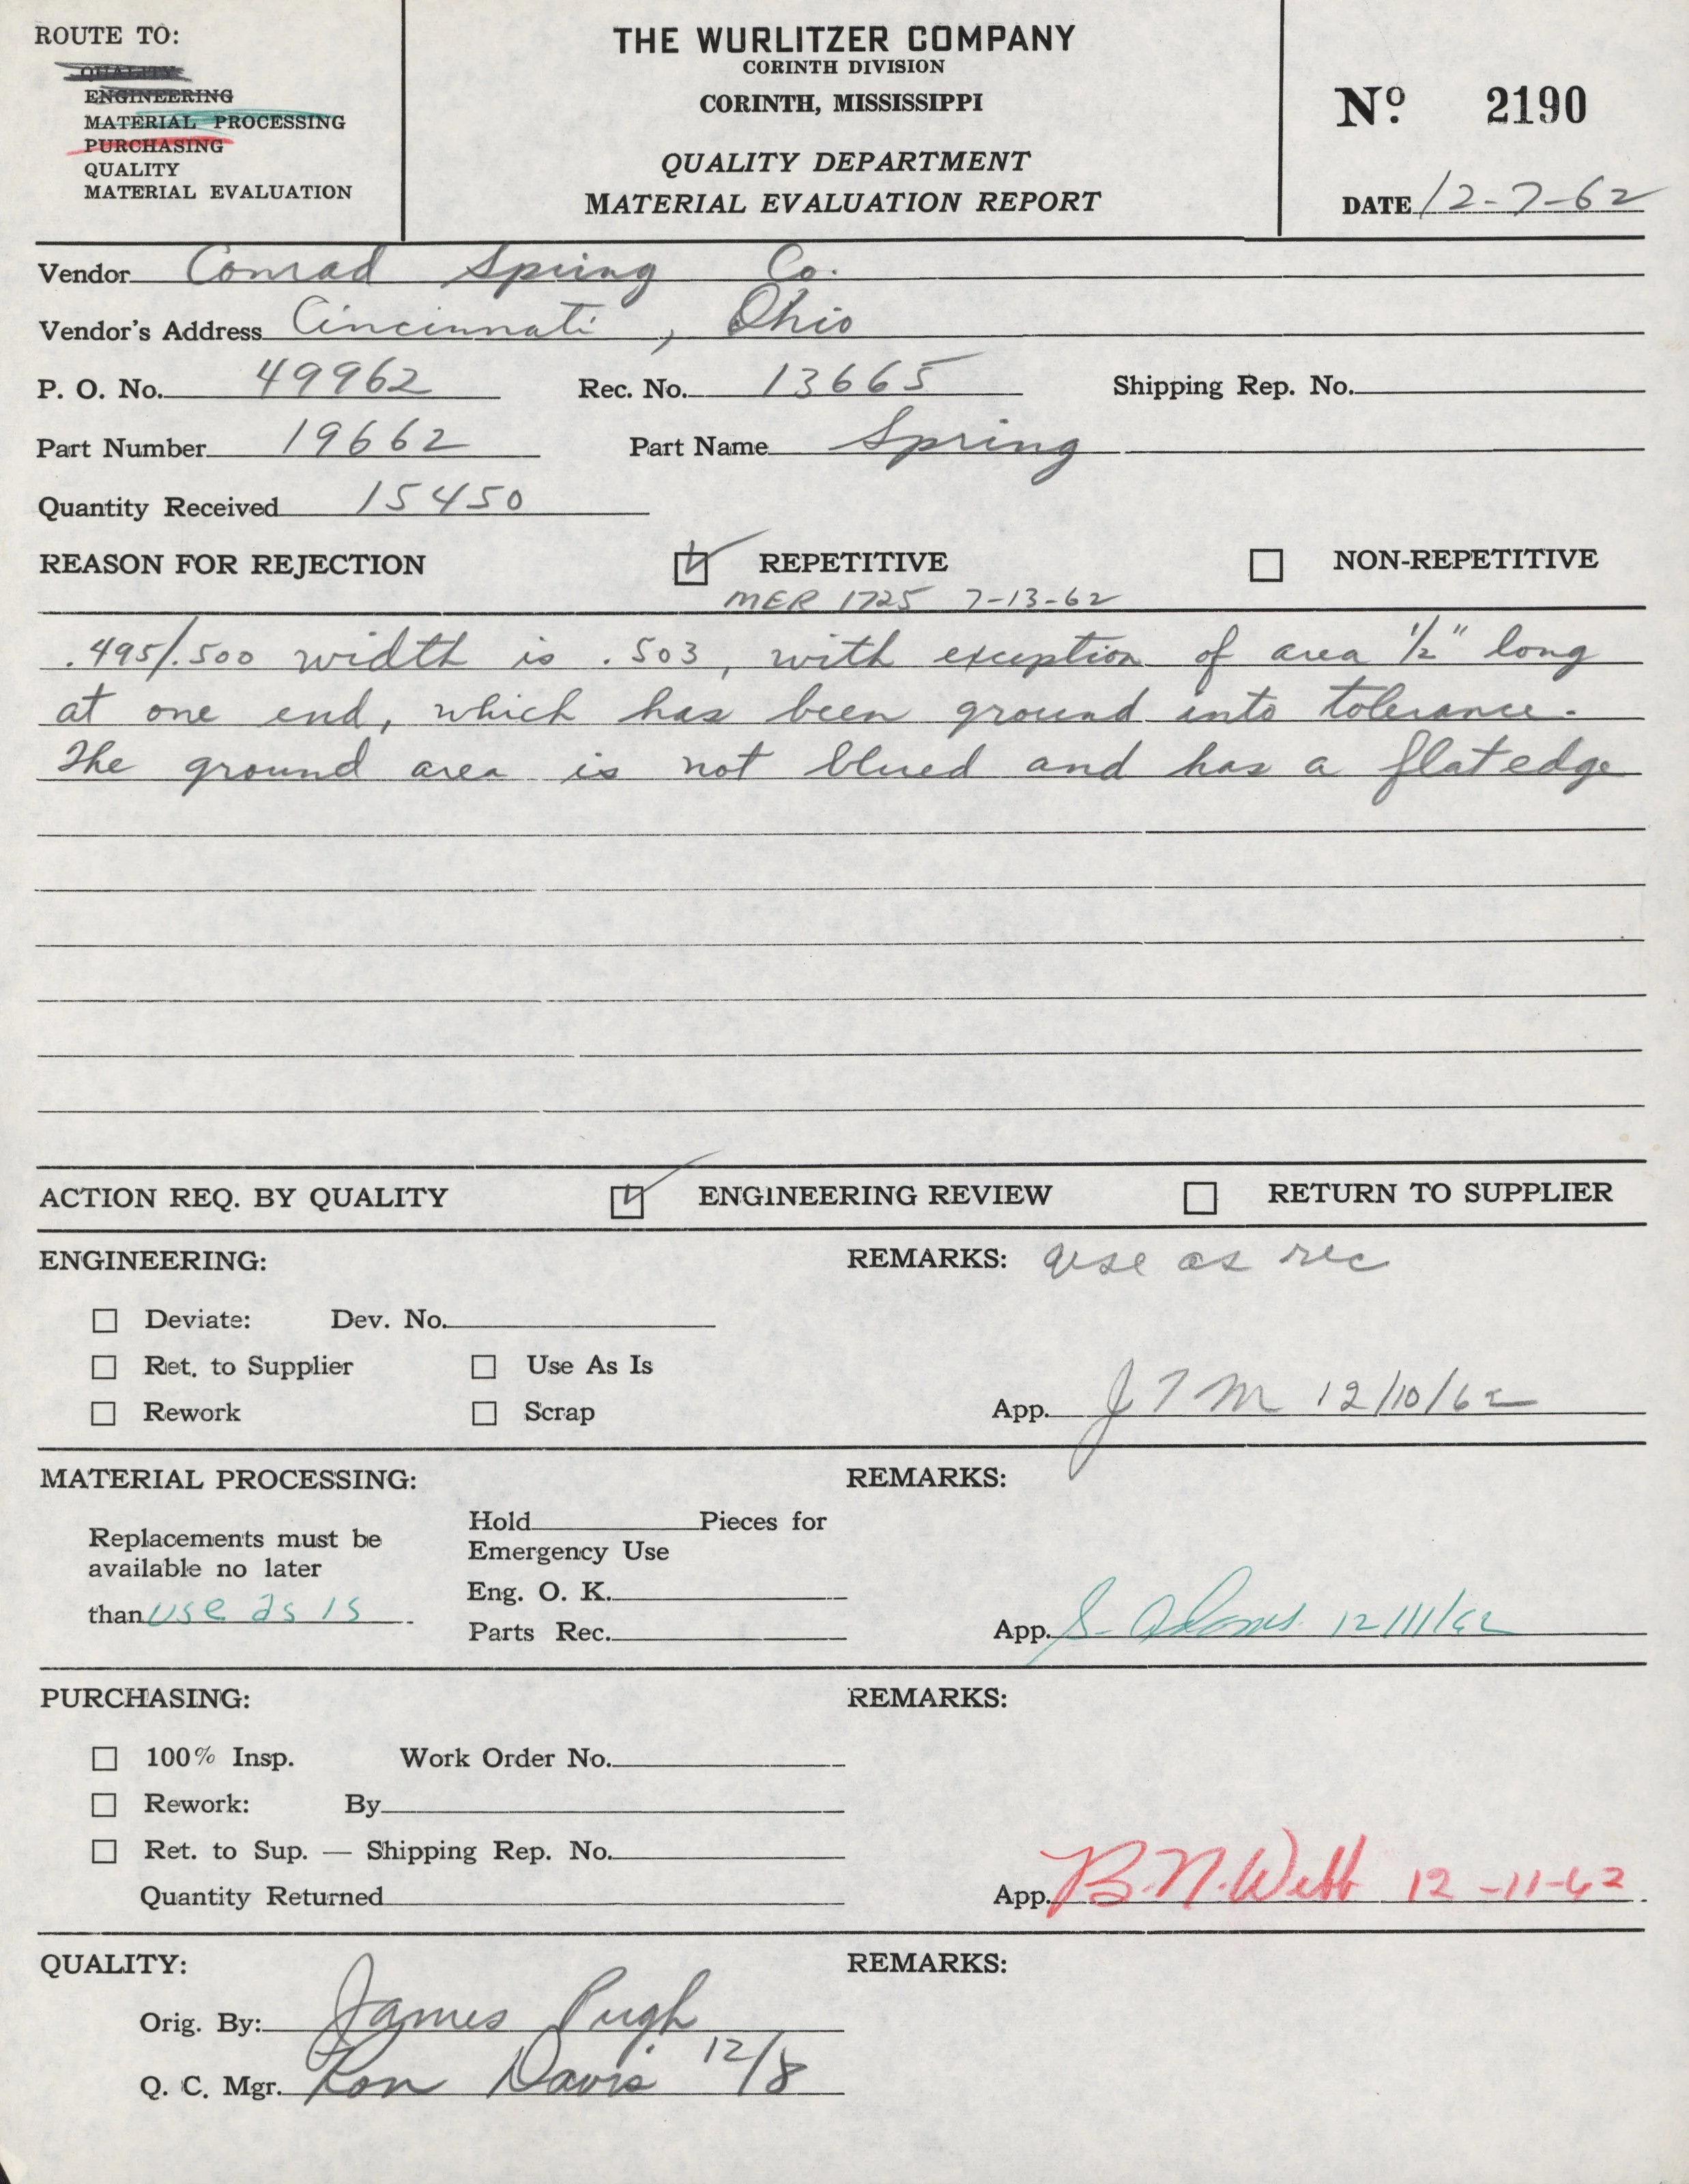 ROUTE TO:
QUALITY
ENGINEERING
MATERIAL PROCESSING
PURCHASING
QUALITY
MATERIAL EVALUATION
THE WURLITZER COMPANY
CORINTH DIVISION
CORINTH, MISSISSIPPI
QUALITY DEPARTMENT
MATERIAL EVALUATION REPORT
Nº 2190
DATE 12-7-62
Vendor Conrad Spring Co.
Vendor's Address Cincinnati, Ohio
P. O. No. 49962 Rec. No. 13665 Shipping Rep. No.
Part Number 19662 Part Name Spring
Quantity Received 15450
REASON FOR REJECTION REPETITIVE NON-REPETITIVE
MER 1725 7-13-62
.495/.500 width is .503, with exception of area 1/2" long
at one end, which has been ground into tolerance.
The ground area is not blued and has a flat edge
ACTION REQ. BY QUALITY ENGINEERING REVIEW RETURN TO SUPPLIER
ENGINEERING: REMARKS: use as rec
Deviate: Dev. No.
Ret. to Supplier Use As Is
Rework Scrap App. JTM 12/10/62
MATERIAL PROCESSING: REMARKS:
Hold Pieces for
Replacements must be
Emergency Use
available no later
Eng. O. K.
than use as is
Parts Rec. App. S. Adams 12/11/62
PURCHASING: REMARKS:
100% Insp. Work Order No.
Rework: By
Ret. to Sup. — Shipping Rep. No.
Quantity Returned App. B.N. Webb 12-11-62
QUALITY: REMARKS:
Orig. By: James Pugh
Q. C. Mgr. Ron Davis 12/8